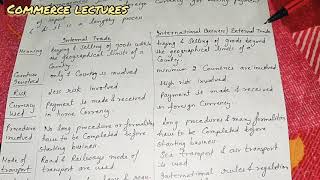 Commerce lectures
& it is a lengthy process
Currency
Internal Trade
International Business/ External Trade
Meaning
buying & selling of goods within the geographical limits of a Country.
buying & Selling of goods beyond the geographical limits of a Country.
Countries Involved
only 1 Country is involved
minimum 2 Countries are involved
Risk
less risk involved
High risk involved.
Currency used
Payment is made & received in home Currency
Payment is made & received in foreign Currency.
Procedure involved
No long procedure or formalities have to be Completed before starting business
Long procedures & many formalities have to be Completed before starting business
Mode of transport
Road & Railways mode of transport are used
Sea transport & air transport is used
International rules & regulation